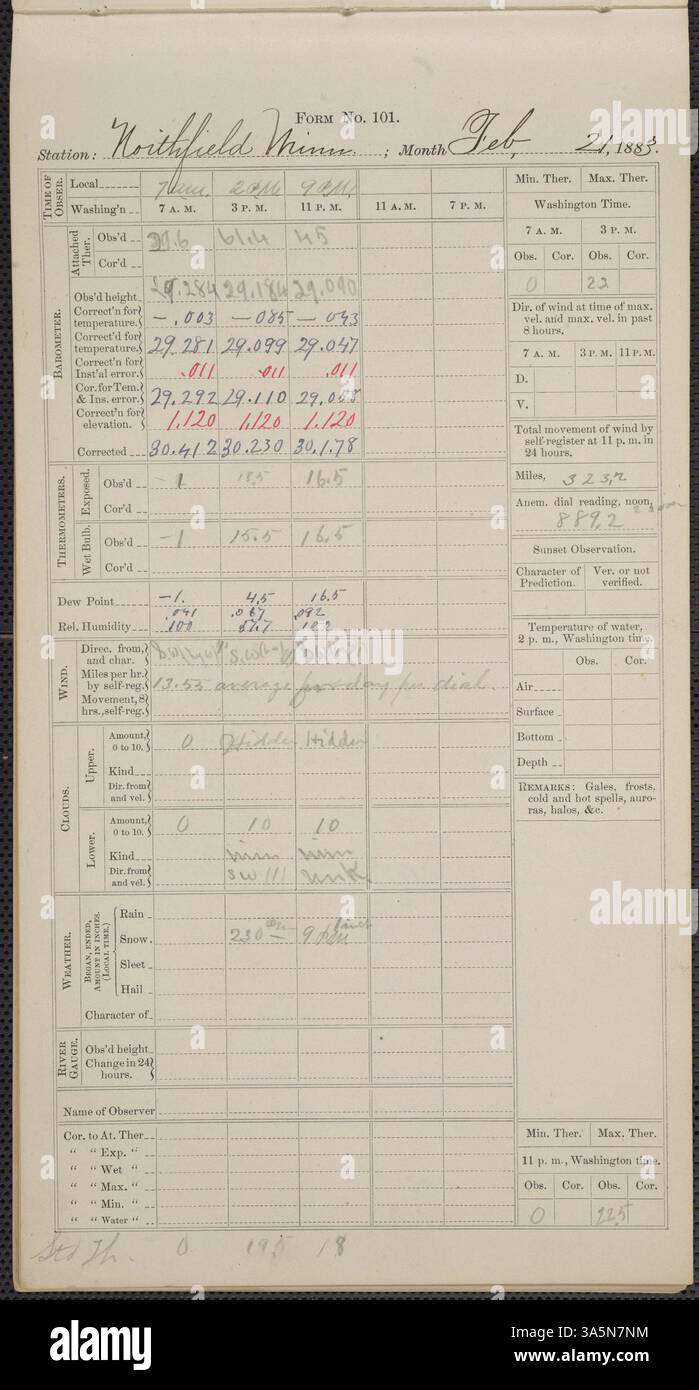 FORM No. 101.
Station: Northfield Minn. ; Month Feb, 21, 1883.
TIME OF OBSER.
Local 7 am. 2 PM 9 PM.
Washing'n 7 A. M. 3 P. M. 11 P. M. 11 A. M. 7 P. M.
BAROMETER.
Attached Ther.
Obs'd 61.4 45
Cor'd
Obs'd height 29.284 29.184 29.090
Correct'n for temperature. -.003 -085 -043
Correct'd for temperature. 29.281 29.099 29.047
Correct'n for Inst'al error. .011 .011 .011
Cor. for Tem. & Ins. error. 29.292 29.110 29.058
Correct'n for elevation. 1.120 1.120 1.120
Corrected 30.412 30.230 30.178
THERMOMETERS.
Exposed.
Obs'd -1 18.5 16.5
Cor'd
Wet Bulb.
Obs'd -1 15.5 16.5
Cor'd
Dew Point -1. 4.5 16.5
.041 .067 .092
Rel. Humidity 100 57.7 102
WIND.
Direc. from, and char.
Miles per hr. by self-reg. 13.55 average for day per dial.
Movement, 8 hrs., self-reg.
CLOUDS.
Upper.
Amount, 0 to 10. 0 Hidden Hidden
Kind
Dir. from and vel.
Lower.
Amount, 0 to 10. 0 10 10
Kind nim nim
Dir. from and vel. SW 111 Unk.
WEATHER.
BEGAN, ENDED, AMOUNT IN INCHES. (LOCAL TIME.)
Rain
Snow. 230 PM 9 PM
Sleet
Hail
Character of
RIVER GAUGE.
Obs'd height
Change in 24 hours.
Name of Observer
Cor. to At. Ther
" " Exp. "
" " Wet "
" " Max. "
" " Min. "
" " Water "
Std Th. 0 19.5 18
Min. Ther. Max. Ther.
Washington Time.
7 A. M. 3 P. M.
Obs. Cor. Obs. Cor.
0 22
Dir. of wind at time of max. vel. and max. vel. in past 8 hours.
7 A. M. 3 P. M. 11 P. M.
D.
V.
Total movement of wind by self-register at 11 p. m. in 24 hours.
Miles, 323.2
Anem. dial reading, noon,
889.2
Sunset Observation.
Character of Prediction. Ver. or not verified.
Temperature of water, 2 p. m., Washington time.
Obs. Cor.
Air
Surface
Bottom
Depth
REMARKS: Gales, frosts, cold and hot spells, auroras, halos, &c.
Min. Ther. Max. Ther.
11 p. m., Washington time.
Obs. Cor. Obs. Cor.
0 22.5
alamy
Image ID: 3A5N7NM
www.alamy.com